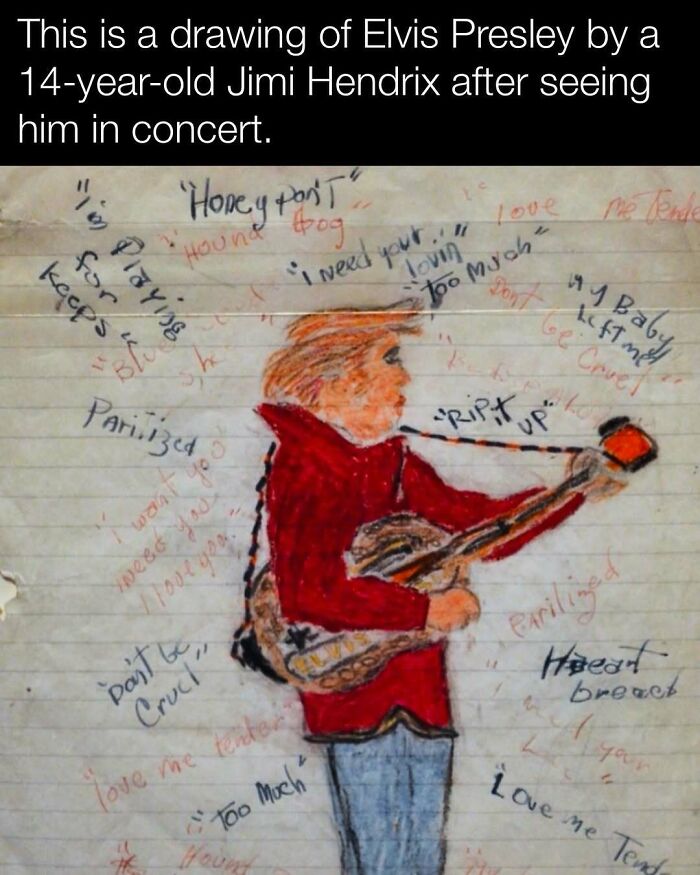 This is a drawing of Elvis Presley by a
14-year-old Jimi Hendrix after seeing
him in concert.
"Honey Don'T"
"i'm Playing
for
Keeps"
"Hound Dog"
love me Tende
"i Need your
lovin"
"Too Much"
My Baby
Left me
Dont
be Cruel"
"Blue
Parilized
"RiPit
UP"
"i want you
need you
I love you"
Parilized
ELVIS
"Don't be
Cruel"
Heart
break
"love me tender
"Too Much"
Love me Tend
Hound